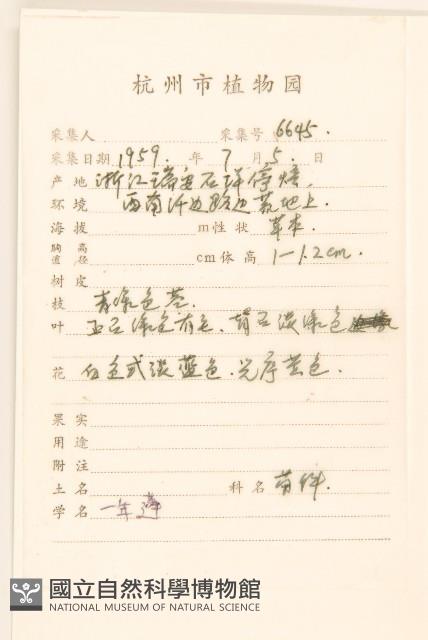 杭州市植物园
采集人 采集号 6645.
采集日期 1959. 年 7 月 5. 日
产地 浙江瑞安石垟
环境 西南 边路边荒地上.
海拔 m 性状 草本.
胸高直径 cm 体高 1—1.2cm.
树皮
枝 青绿色茎.
叶 正面绿色有毛. 背面淡绿色
花 白色或淡蓝色. 花序黄色.
果实
用途
附注
土名 科名 菊科.
学名 一年蓬
國立自然科學博物館
NATIONAL MUSEUM OF NATURAL SCIENCE